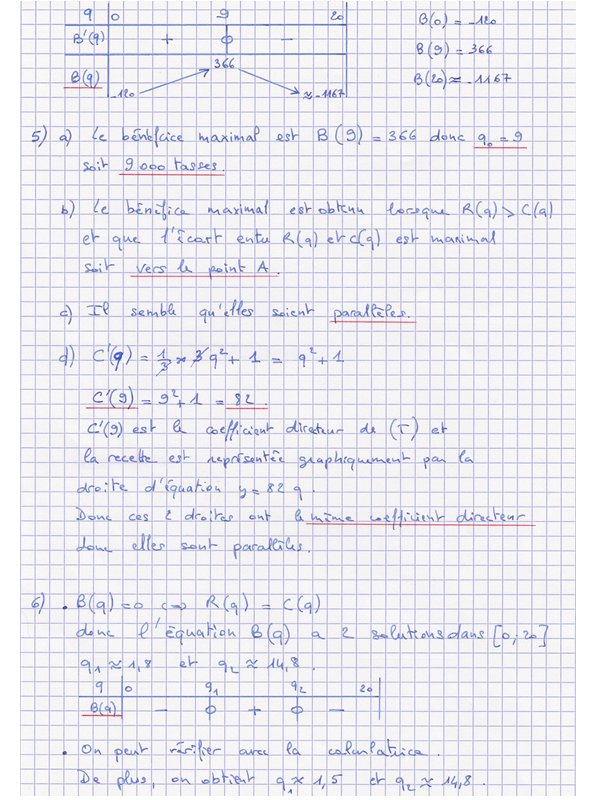 q 0 9 20 B(0) = -120
B'(q) + 0 - B(9) = 366
B(q) -120 366 ≈ -1167 B(20) ≈ -1167
5) a) Le bénéfice maximal est B(9) = 366 donc q₀ = 9
soit 9 000 tasses.
b) Le bénéfice maximal est obtenu lorsque R(q) > C(q)
et que l'écart entre R(q) et C(q) est maximal
soit vers le point A.
c) Il semble qu'elles soient parallèles.
d) C'(q) = 1/3 × 3q² + 1 = q² + 1
C'(9) = 9² + 1 = 82.
C'(9) est le coefficient directeur de (T) et
la recette est représentée graphiquement par la
droite d'équation y = 82 q.
Donc ces 2 droites ont le même coefficient directeur
donc elles sont parallèles.
6) • B(q) = 0 ⇔ R(q) = C(q)
donc l'équation B(q) a 2 solutions dans [0; 20]
q₁ ≈ 1,8 et q₂ ≈ 14,8.
q 0 q₁ q₂ 20
B(q) - 0 + 0 -
• On peut vérifier avec la calculatrice.
De plus, on obtient q₁ ≈ 1,5 et q₂ ≈ 14,8.